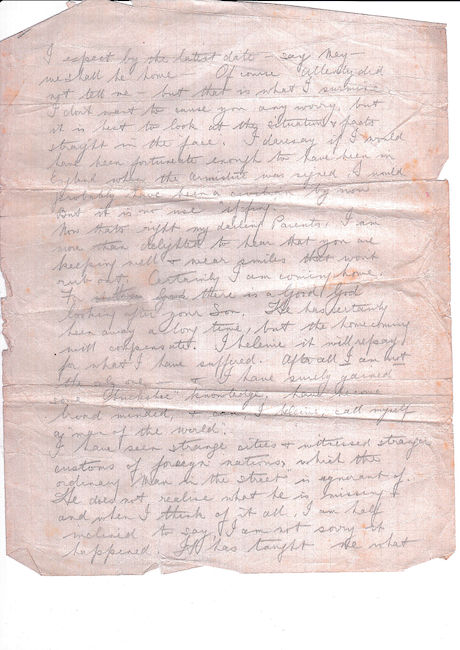 I expect by the latest date - say May -
we shall be home - Of course Allenby did
not tell me - but that is what I surmise.
I don't want to cause you any worry, but
it is best to look at the situation & facts
straight in the face. I daresay if I would
have been fortunate enough to have been in
England when the Armistice was signed I would
probably have been a civilian by now
But it is no use
Now thats right my darling Parents, I am
more than delighted to hear that you are
keeping well & wear smiles that wont
rub out. Certainly I am coming home.
there is a Good God
looking after your Son. He has certainly
been away a long time, but the homecoming
will compensate. I believe it will repay
for what I have suffered. After all I am not
the only one - & I have surely gained
some knowledge, have become
broad minded & can, I believe, call myself
a man of the world.
I have seen strange cities & witnessed stranger
customs of foreign nations, which the
ordinary "man in the street" is ignorant of.
He does not realise what he is missing &
and when I think of it all, I am half
inclined to say, I am not sorry it
happened. It has taught me what